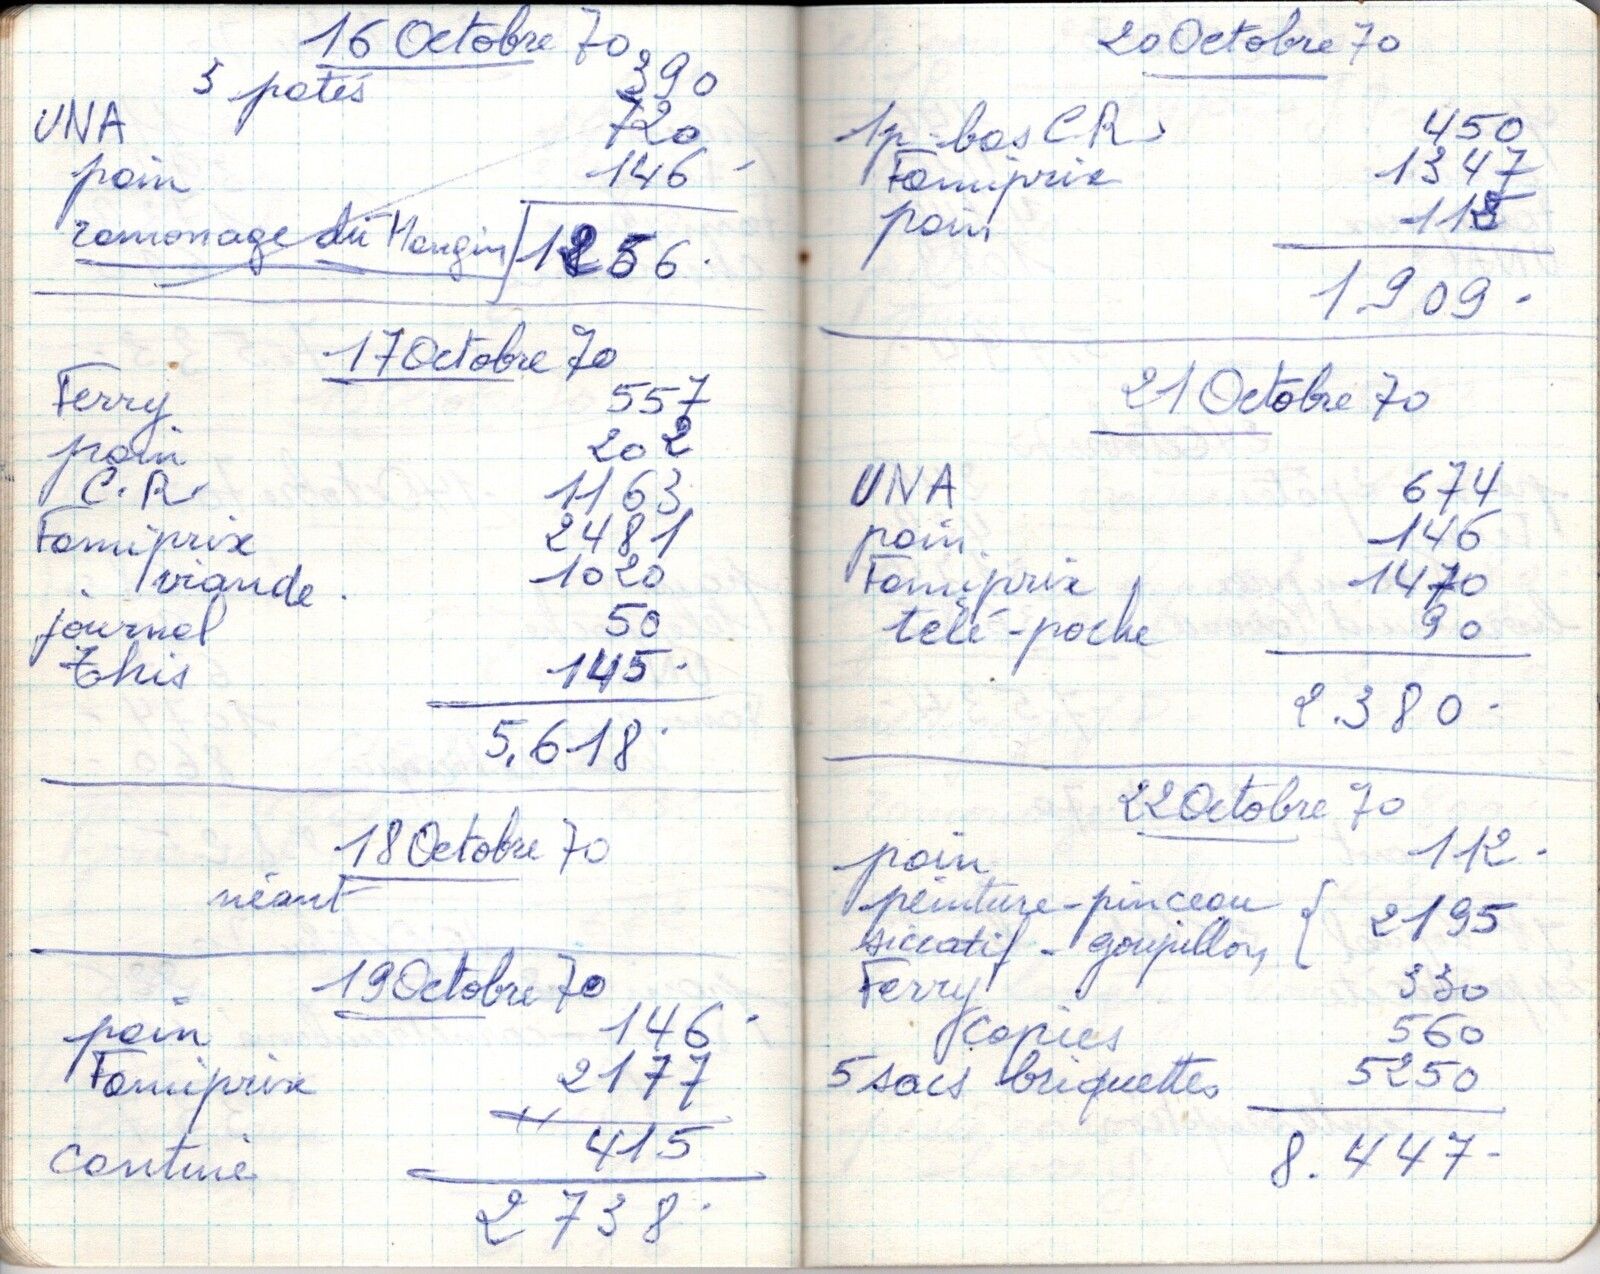 16 Octobre 70
5 patés 390
UNA 720
pain 146
ramonage du Mangin 1256.
17 Octobre 70
Ferry 557
pain 202
C.R. 1163
Famiprix 2481
viande 1020
journal 50
Ehis 145.
5.618.
18 Octobre 70
néant
19 Octobre 70
pain 146.
Famiprix 2177
415
cantine
2738.
20 Octobre 70
1p-bas CR 450
Famiprix 1347
pain 112
1.909.
21 Octobre 70
UNA 674
pain 146
Famiprix 1470
télé-poche 90
2.380.
22 Octobre 70
pain 112.
peinture-pinceau 2195
siccatif - goupillon
Ferry 330
copies 560
5 sacs briquettes 5250
8.447.